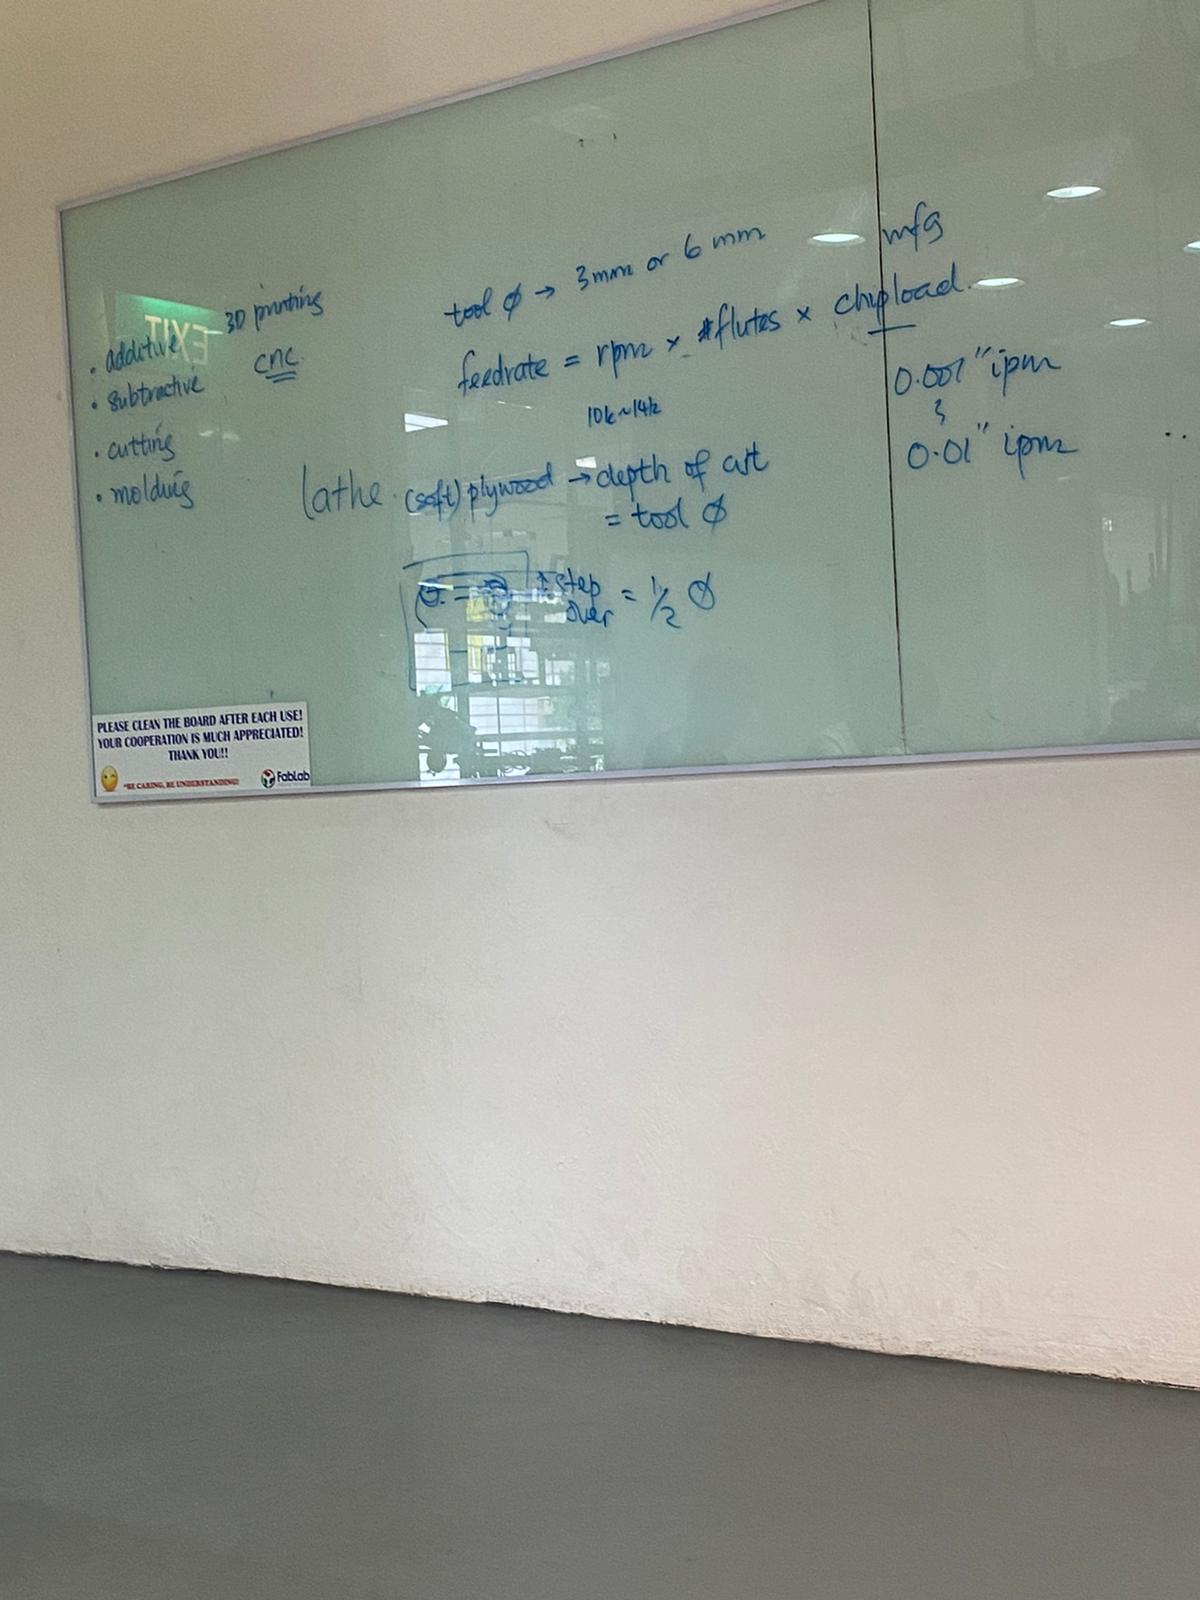 3D printing
• additive
• subtractive
cnc
• cutting
• molding
lathe.
tool ϕ → 3mm or 6 mm
mfg
feedrate = rpm × #flutes × chipload.
10k~14k
0.001" ipm
0.01" ipm
(soft) plywood → depth of cut
= tool ϕ
↕ step over = 1/2 ϕ
EXIT
PLEASE CLEAN THE BOARD AFTER EACH USE!
YOUR COOPERATION IS MUCH APPRECIATED!
THANK YOU!!
"BE CARING, BE UNDERSTANDING!"
FabLab